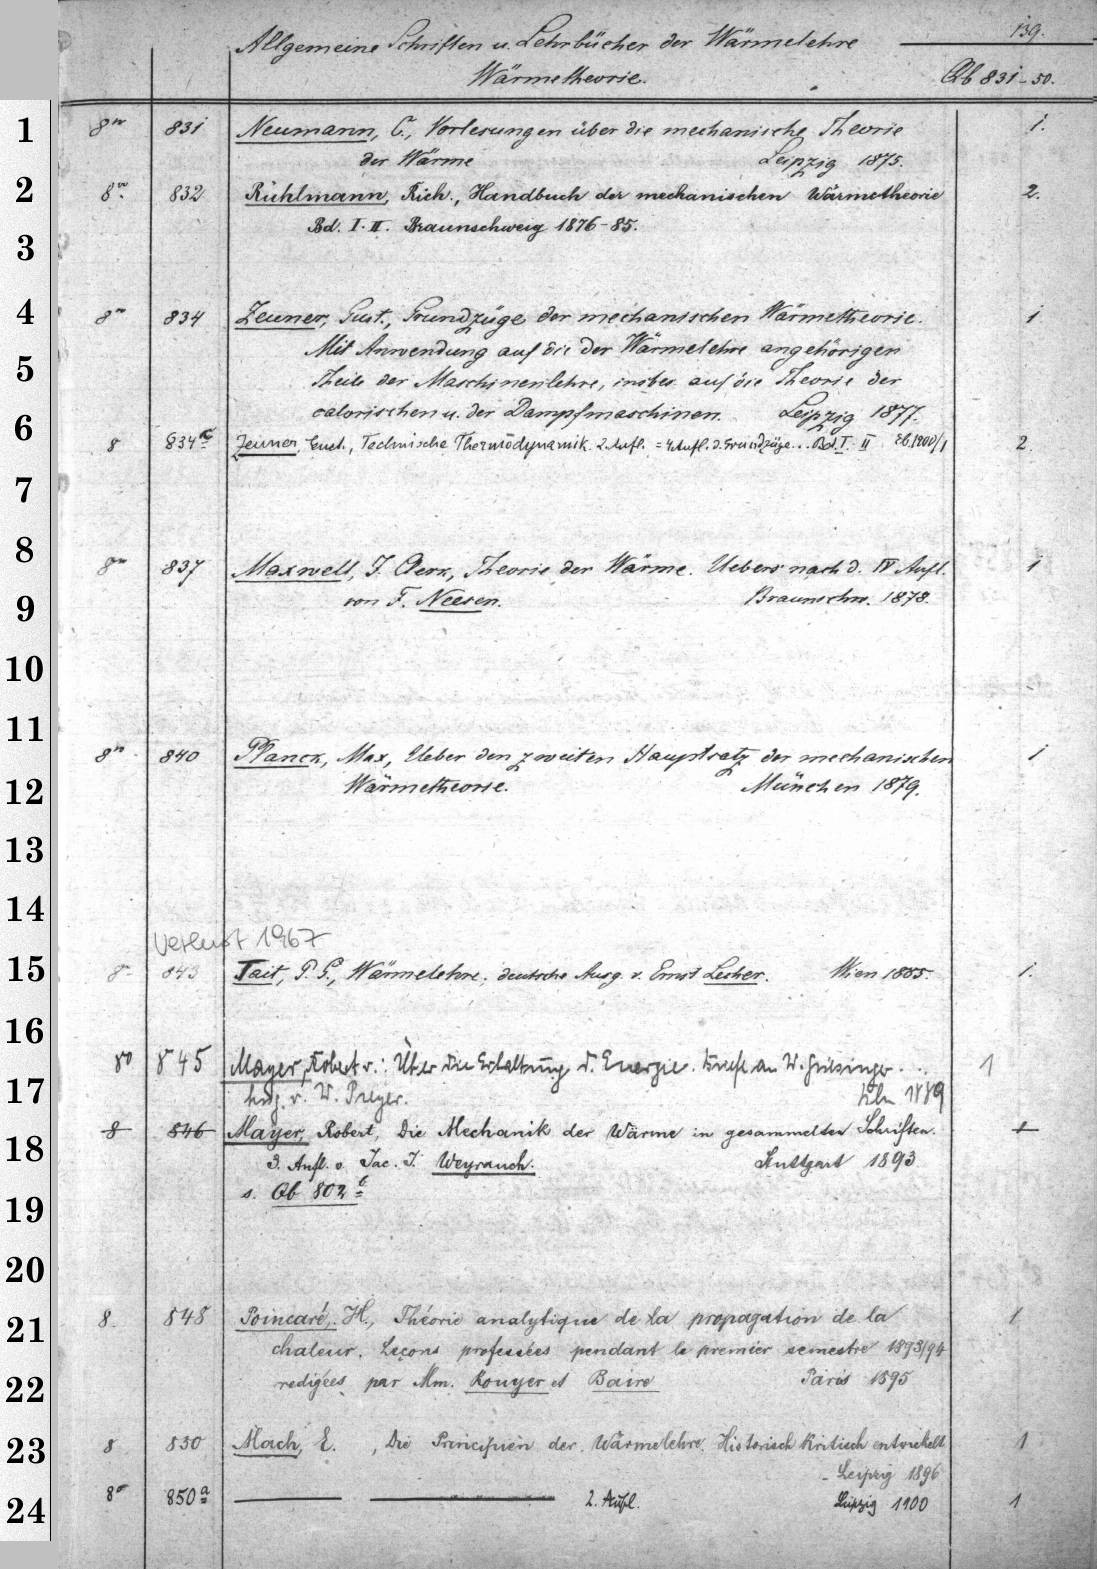 139.
Allgemeine Schriften u. Lehrbücher der Wärmelehre
Wärmetheorie. Qb 831-50.
1 8vo 831 Neumann, C., Vorlesungen über die mechanische Theorie 1.
der Wärme Leipzig 1875.
2 8vo 832 Rühlmann, Rich., Handbuch der mechanischen Wärmetheorie 2.
Bd. I. II. Braunschweig 1876-85.
3
4 8vo 834 Zeuner, Gust., Grundzüge der mechanischen Wärmetheorie. 1
Mit Anwendung auf die der Wärmelehre angehörigen
5 Theile der Maschinenlehre, insbes. auf die Theorie der
calorischen u. der Dampfmaschinen. Leipzig 1877.
6 8 834a Zeuner, Gust., Technische Thermodynamik. 2. Aufl. = 4. Aufl. d. Grundzüge... Bd. I. II 1900/1 2.
7
8 8vo 837 Maxwell, J. Clerk, Theorie der Wärme. Uebers. nach d. IV Aufl. 1
9 von F. Neesen. Braunschw. 1878.
10
11 8vo 840 Planck, Max, Ueber den zweiten Hauptsatz der mechanischen 1
12 Wärmetheorie. München 1879.
13
14
Verlust 1967
15 8 843 Tait, P. G., Wärmelehre, deutsche Ausg. v. Ernst Lecher. Wien 1885. 1.
16
80 845 Mayer, Robert v.: Über die Erhaltung d. Energie. Briefe an W. Griesinger. 1
17 hrsg. v. W. Preyer. Bln 1889
8 846 Mayer, Robert, Die Mechanik der Wärme in gesammelten Schriften. 1
18 3. Aufl. v. Jac. J. Weyrauch. Stuttgart 1893
19 s. Qb 802
20
21 8. 848 Poincaré, H., Théorie analytique de la propagation de la 1
chaleur. Leçons professées pendant le premier semestre 1893/94
22 redigées par Mm. Rouyer et Baire Paris 1895
23 8 850 Mach, E., Die Principien der Wärmelehre. Historisch kritisch entwickelt 1
Leipzig 1896
24 8o 850a 2. Aufl. Leipzig 1900 1